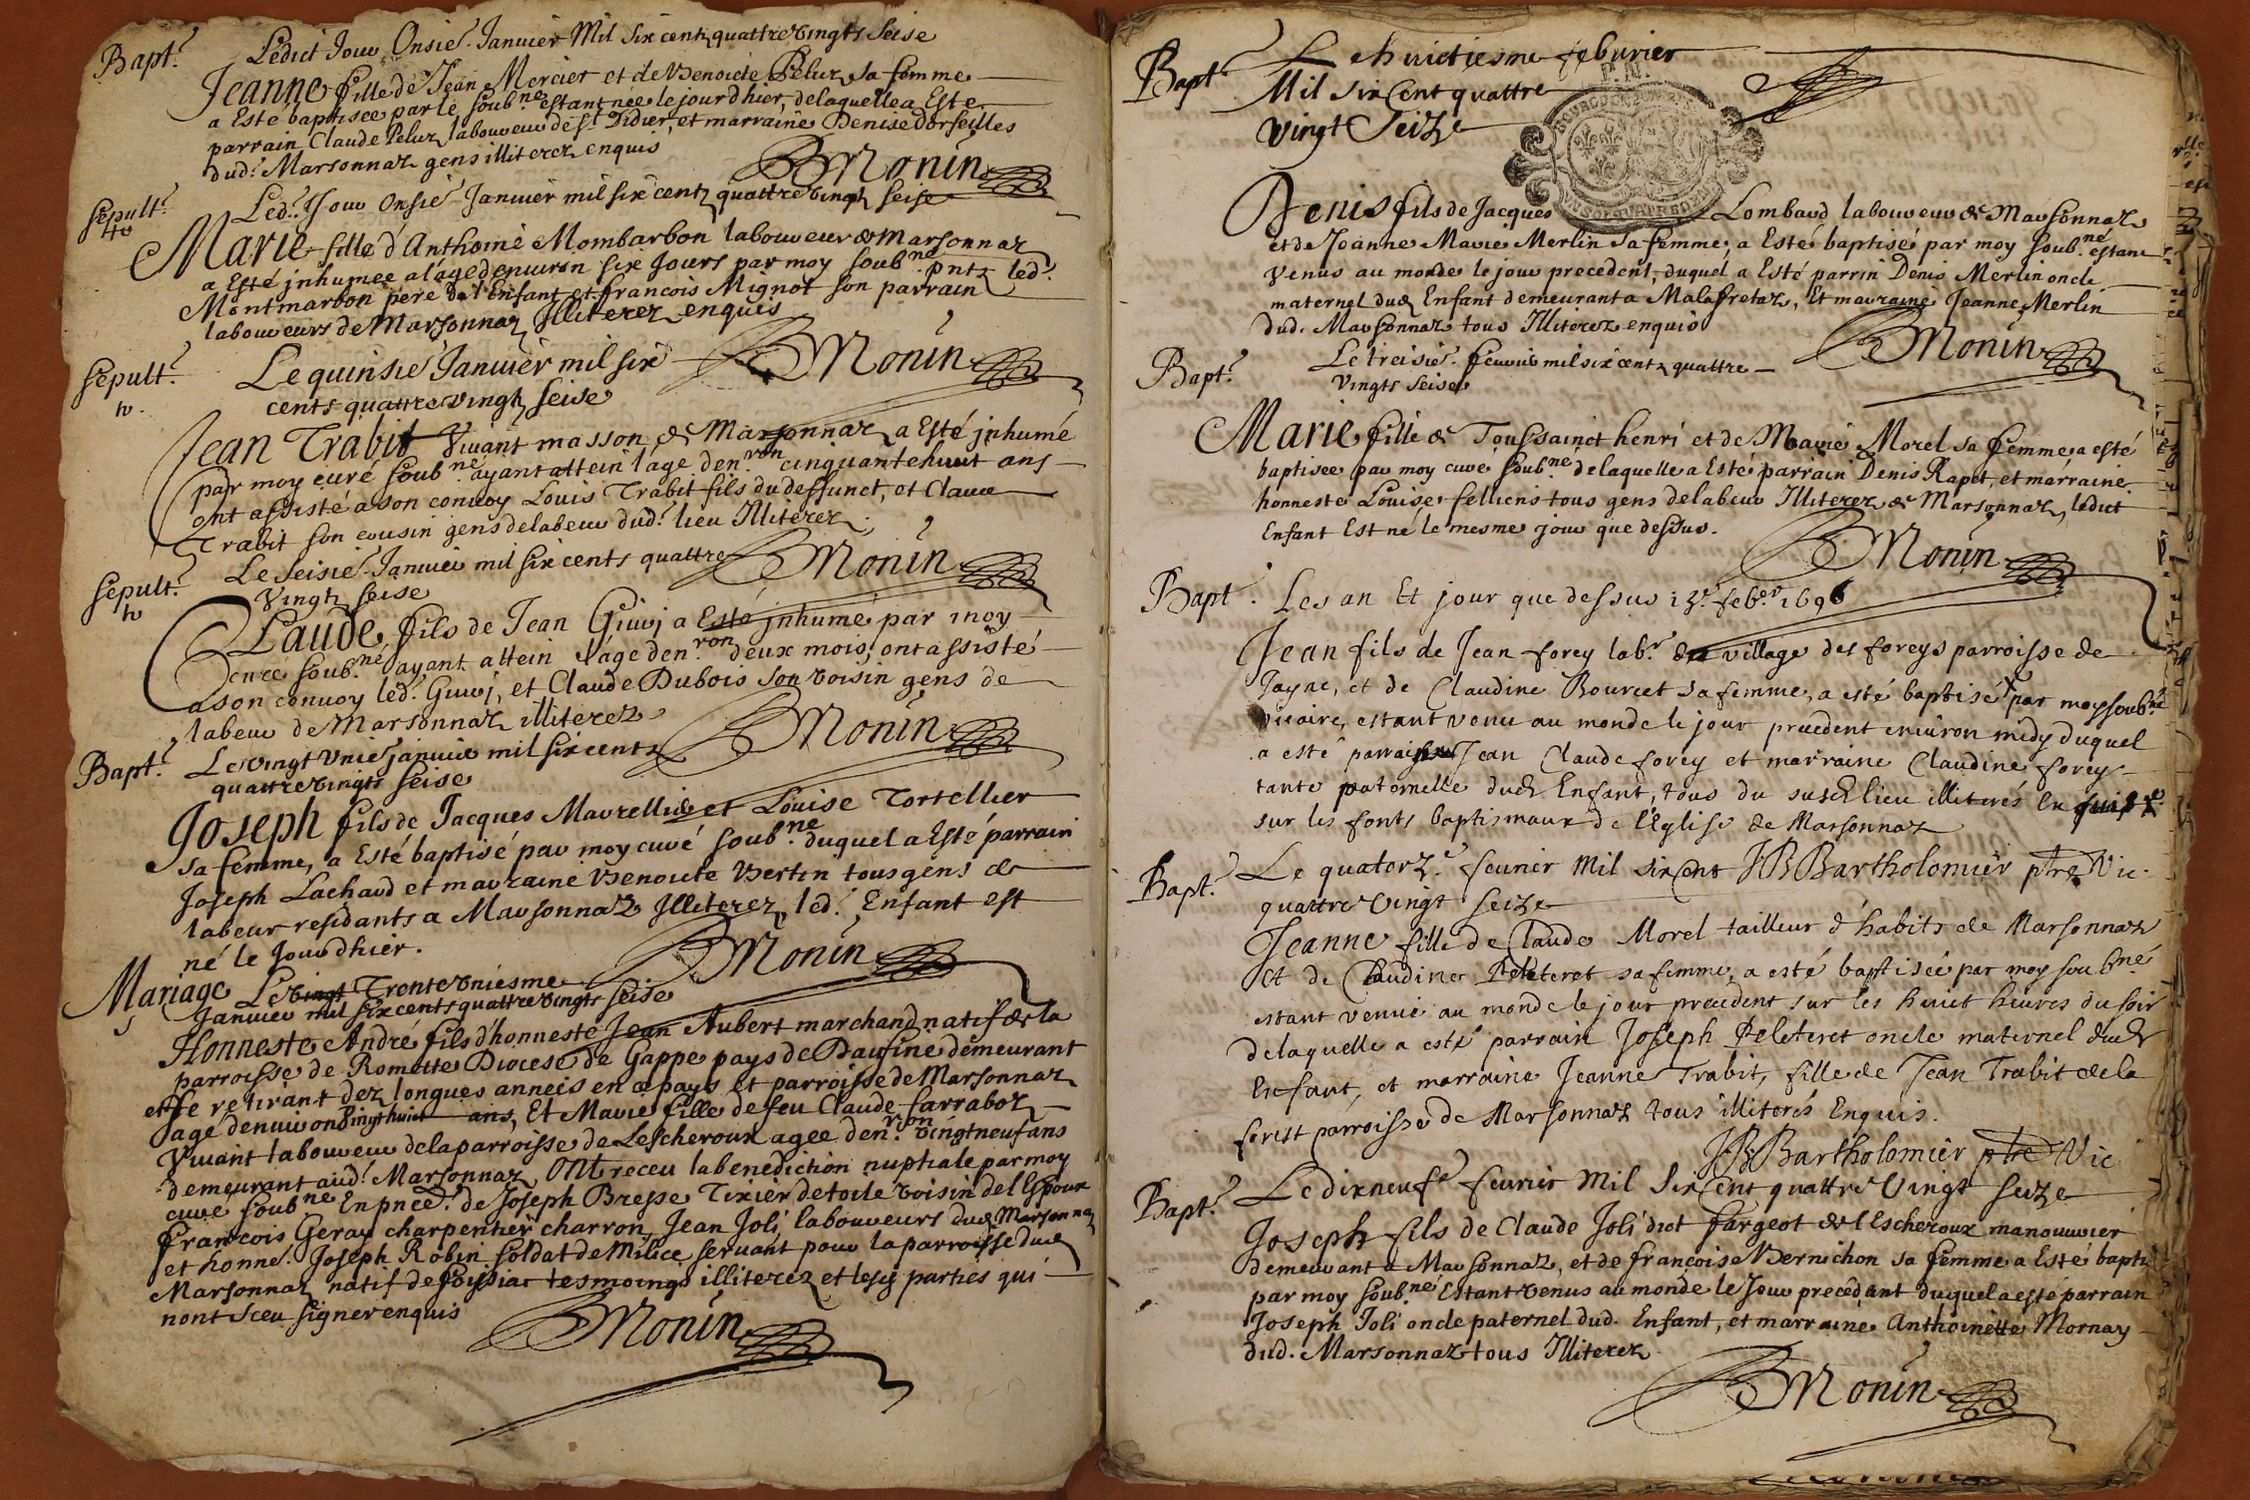 Bapt.e Ledict Jour Onsie. Januier Mil Six centz quattre vingts seise
Jeanne fille de Jean Mercier et de Benoicte Peluz sa femme
a Esté baptisee par le soub.né estant née le jour dhier, de laquelle a Este
parrain Claude Peluz laboureur de S.t Didier, et marraine Denise dorseilles
dud.t Marsonnaz gens illiterez enquis
BMonin
Sepult.re Led.t Jour onsie Januier mil six centz quattre vingtz seise
Marie fille d'Anthoine Mombarbon laboureur de Marsonnaz
a Esté jnhumee a l'âge denuiron six Jours par moy soub.né pntz led.t
Montmarbon pere de l'Enfant et francois Mignot son parrain
laboureurs de Marsonnaz Illiterez enquis
BMonin
Sepult.re Le quinsie Januier mil six
cents quattre vingtz seise
Jean Trabit Viuant masson de Marsonnaz a Esté jnhumé
par moy curé soub.né ayant attein l'âge den.ron cinquante huit ans
ont assisté a son conuoy Louis Trabit fils du deffunct, et Claude
Trabit son cousin gens de labeur dud.t lieu Illiterez
BMonin
Sepult.re Le Seisie. Januier mil six cents quattre
Vingtz seise
Claude fils de Jean Giuoj a Esté jnhumé par moy
curé soub.né ayant attein l'âge den.ron deux mois, ont assisté
a son conuoy led.t Giuoj, et Claude Dubois son voisin gens de
labeur de Marsonnaz illiterez
BMonin
Bapt.e Le vingt vnie januier mil six centz
quattre vingts seise
Joseph fils de Jacques Maurellie et Louise Tortellier
sa femme, a Esté baptisé par moy curé soub.né duquel a Esté parrain
Joseph Lachard et marraine Benoite Bertin tous gens de
labeur residants a Marsonnaz Illiterez, led.t Enfant est
né le Jour dhier.
BMonin
Mariage Le vingt Trente vniesme
Januier mil six cents quattre vingts seise
Honneste André fils d'honneste Jean Aubert marchand natif de la
parroisse de Romette Diocese de Gappe pays de Daufine demeurant
et se retirant dez longues annees en ce pays et parroisse de Marsonnaz
agé denuiron vingt huict ans, Et Marie fille de feu Claude farraboz
Viuant laboureur de la parroisse de Lescheroux agee den.ron vingt neuf ans
demeurant aud.t Marsonnaz, Ont receu la benediction nuptiale par moy
curé soub.né En pnce. de Joseph Bresse Tixier de toile voisin de l'Epoux
francois Geray charpentier charron, Jean Joli laboureurs dud. Marsonnaz
et honne. Joseph Robin soldat de Milice seruant pour la parroisse dud.
Marsonnaz natif de foissiat tesmoings illiterez et lesd. parties qui
nont sceu signer enquis
BMonin
Bapt.e Le huictiesme feburier
Mil six Cent quattre
vingt Seize
Denis fils de Jacques Lombard laboureur de Marsonnaz
et de Joanne Marie Merlin sa femme, a Esté baptisé par moy soub.né estant
Venus au monde le jour precedent, duquel a Esté parrin Denis Merlin oncle
maternel dud. Enfant demeurant a Malafretaz, Et marraine Jeanne Merlin
dud. Marsonnaz tous Illiterez enquis
BMonin
Bapt.e Le treisie. feurier mil six centz quattre
vingts seise
Marie fille de Toussainct henri et de Marie Morel sa femme a esté
baptisee par moy curé soub.né de laquelle a Esté parrain Denis Rapet, et marraine
honneste Louise felliens tous gens de labeur Illiterez de Marsonnaz, ledict
Enfant Est né le mesme jour que dessus.
BMonin
Bapt. Les an Et jour que dessus 13.e feb.er 1696
Jean fils de Jean forey lab.r du village des foreys parroisse de
Jayne, et de Claudine Bourcet sa femme, a esté baptisé par moy soub.né
vicaire, estant venu au monde le jour precedent enuiron midy duquel
a esté parrain Jean Claude forey et marraine Claudine forey
tante paternelle dud. Enfant, tous du susd. lieu illiterés
sur les fonts baptismaux de l'Eglise de Marsonnaz
JBBartholomier ptre Vic.
Bapt.e Le quatorz.e feurier Mil six Cent
quattre Vingt seize
Jeanne fille de Claude Morel tailleur d'habits de Marsonnaz
Et de Claudine Peleteret sa femme, a esté baptisée par moy soub.né
estant venue au monde le jour precedent sur les huict heures du soir
de laquelle a esté parrain Joseph Peleteret oncle maternel dud.
Enfant, et marraine Jeanne Trabit, fille de Jean Trabit de la
parroisse de Marsonnaz tous illiterés Enquis.
JBBartholomier ptre Vic
Bapt.e Le dixneuf.e feurier Mil Six Cent quattre Vingt seize
Joseph fils de Claude Joli dict fargeot de lEscheroux manouurier
demeurant a Marsonnaz, et de francoise Bernichon sa femme a Esté bapti
par moy soub.né Estant venus au monde le Jour precedant duquel a esté parrain
Joseph Joli oncle paternel dud. Enfant, et marraine Anthoinette Mornay
dud. Marsonnaz tous Illiterez
BMonin